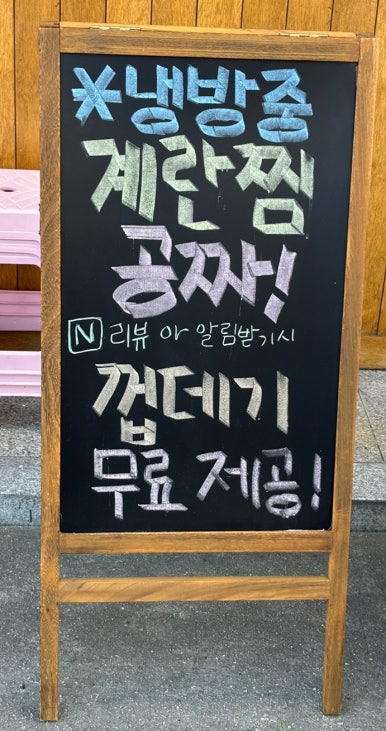 *냉방중
계란찜
공짜!
N 리뷰 or 알림받기시
껍데기
무료 제공!